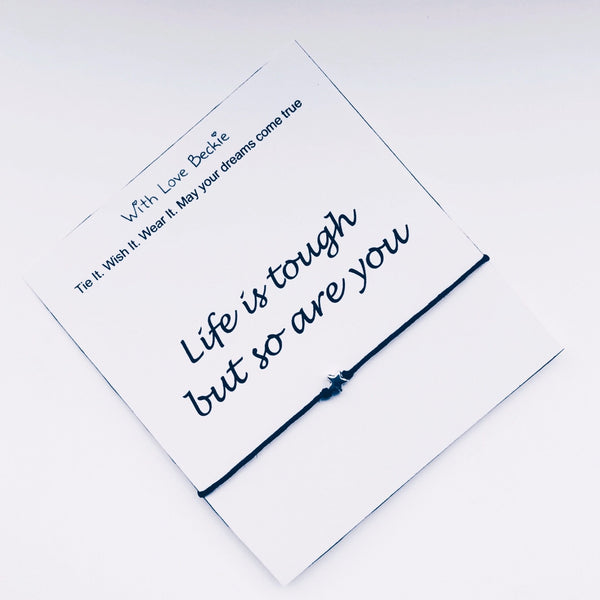 With Love Beckie
Tie It. Wish It. Wear It. May your dreams come true
Life is tough
but so are you